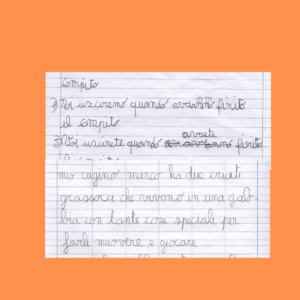 compito
2) Noi usciremo quando avranno finito
il compito
avrete
3) Voi uscirete quando avranno finito
mio cugino marco ha due criceti
grassocci che vivono in una gab-
bia con tante cose speciali per
farli muovere e giocare...